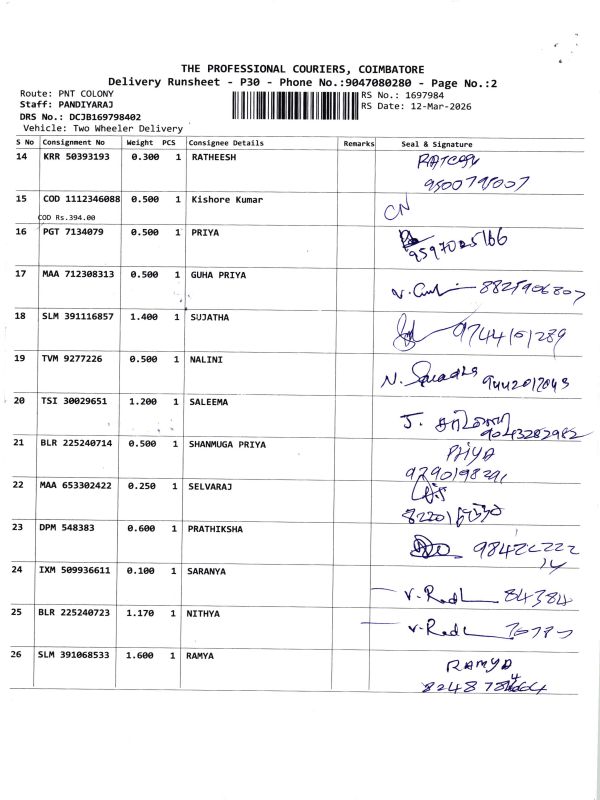 THE PROFESSIONAL COURIERS, COIMBATORE
Delivery Runsheet - P30 - Phone No.:9047080280 - Page No.:2
Route: PNT COLONY
RS No.: 1697984
Staff: PANDIYARAJ
RS Date: 12-Mar-2026
DRS No.: DCJB169798402
Vehicle: Two Wheeler Delivery
S No Consignment No Weight PCS Consignee Details Remarks Seal & Signature
14 KRR 50393193 0.300 1 RATHEESH
15 COD 1112346088 0.500 1 Kishore Kumar CN
COD Rs.394.00
16 PGT 7134079 0.500 1 PRIYA
17 MAA 712308313 0.500 1 GUHA PRIYA
18 SLM 391116857 1.400 1 SUJATHA
19 TVM 9277226 0.500 1 NALINI N.
20 TSI 30029651 1.200 1 SALEEMA J.
9043282982
21 BLR 225240714 0.500 1 SHANMUGA PRIYA PRIYA
22 MAA 653302422 0.250 1 SELVARAJ
23 DPM 548383 0.600 1 PRATHIKSHA
24 IXM 509936611 0.100 1 SARANYA 84384
25 BLR 225240723 1.170 1 NITHYA
26 SLM 391068533 1.600 1 RAMYA RAMYA